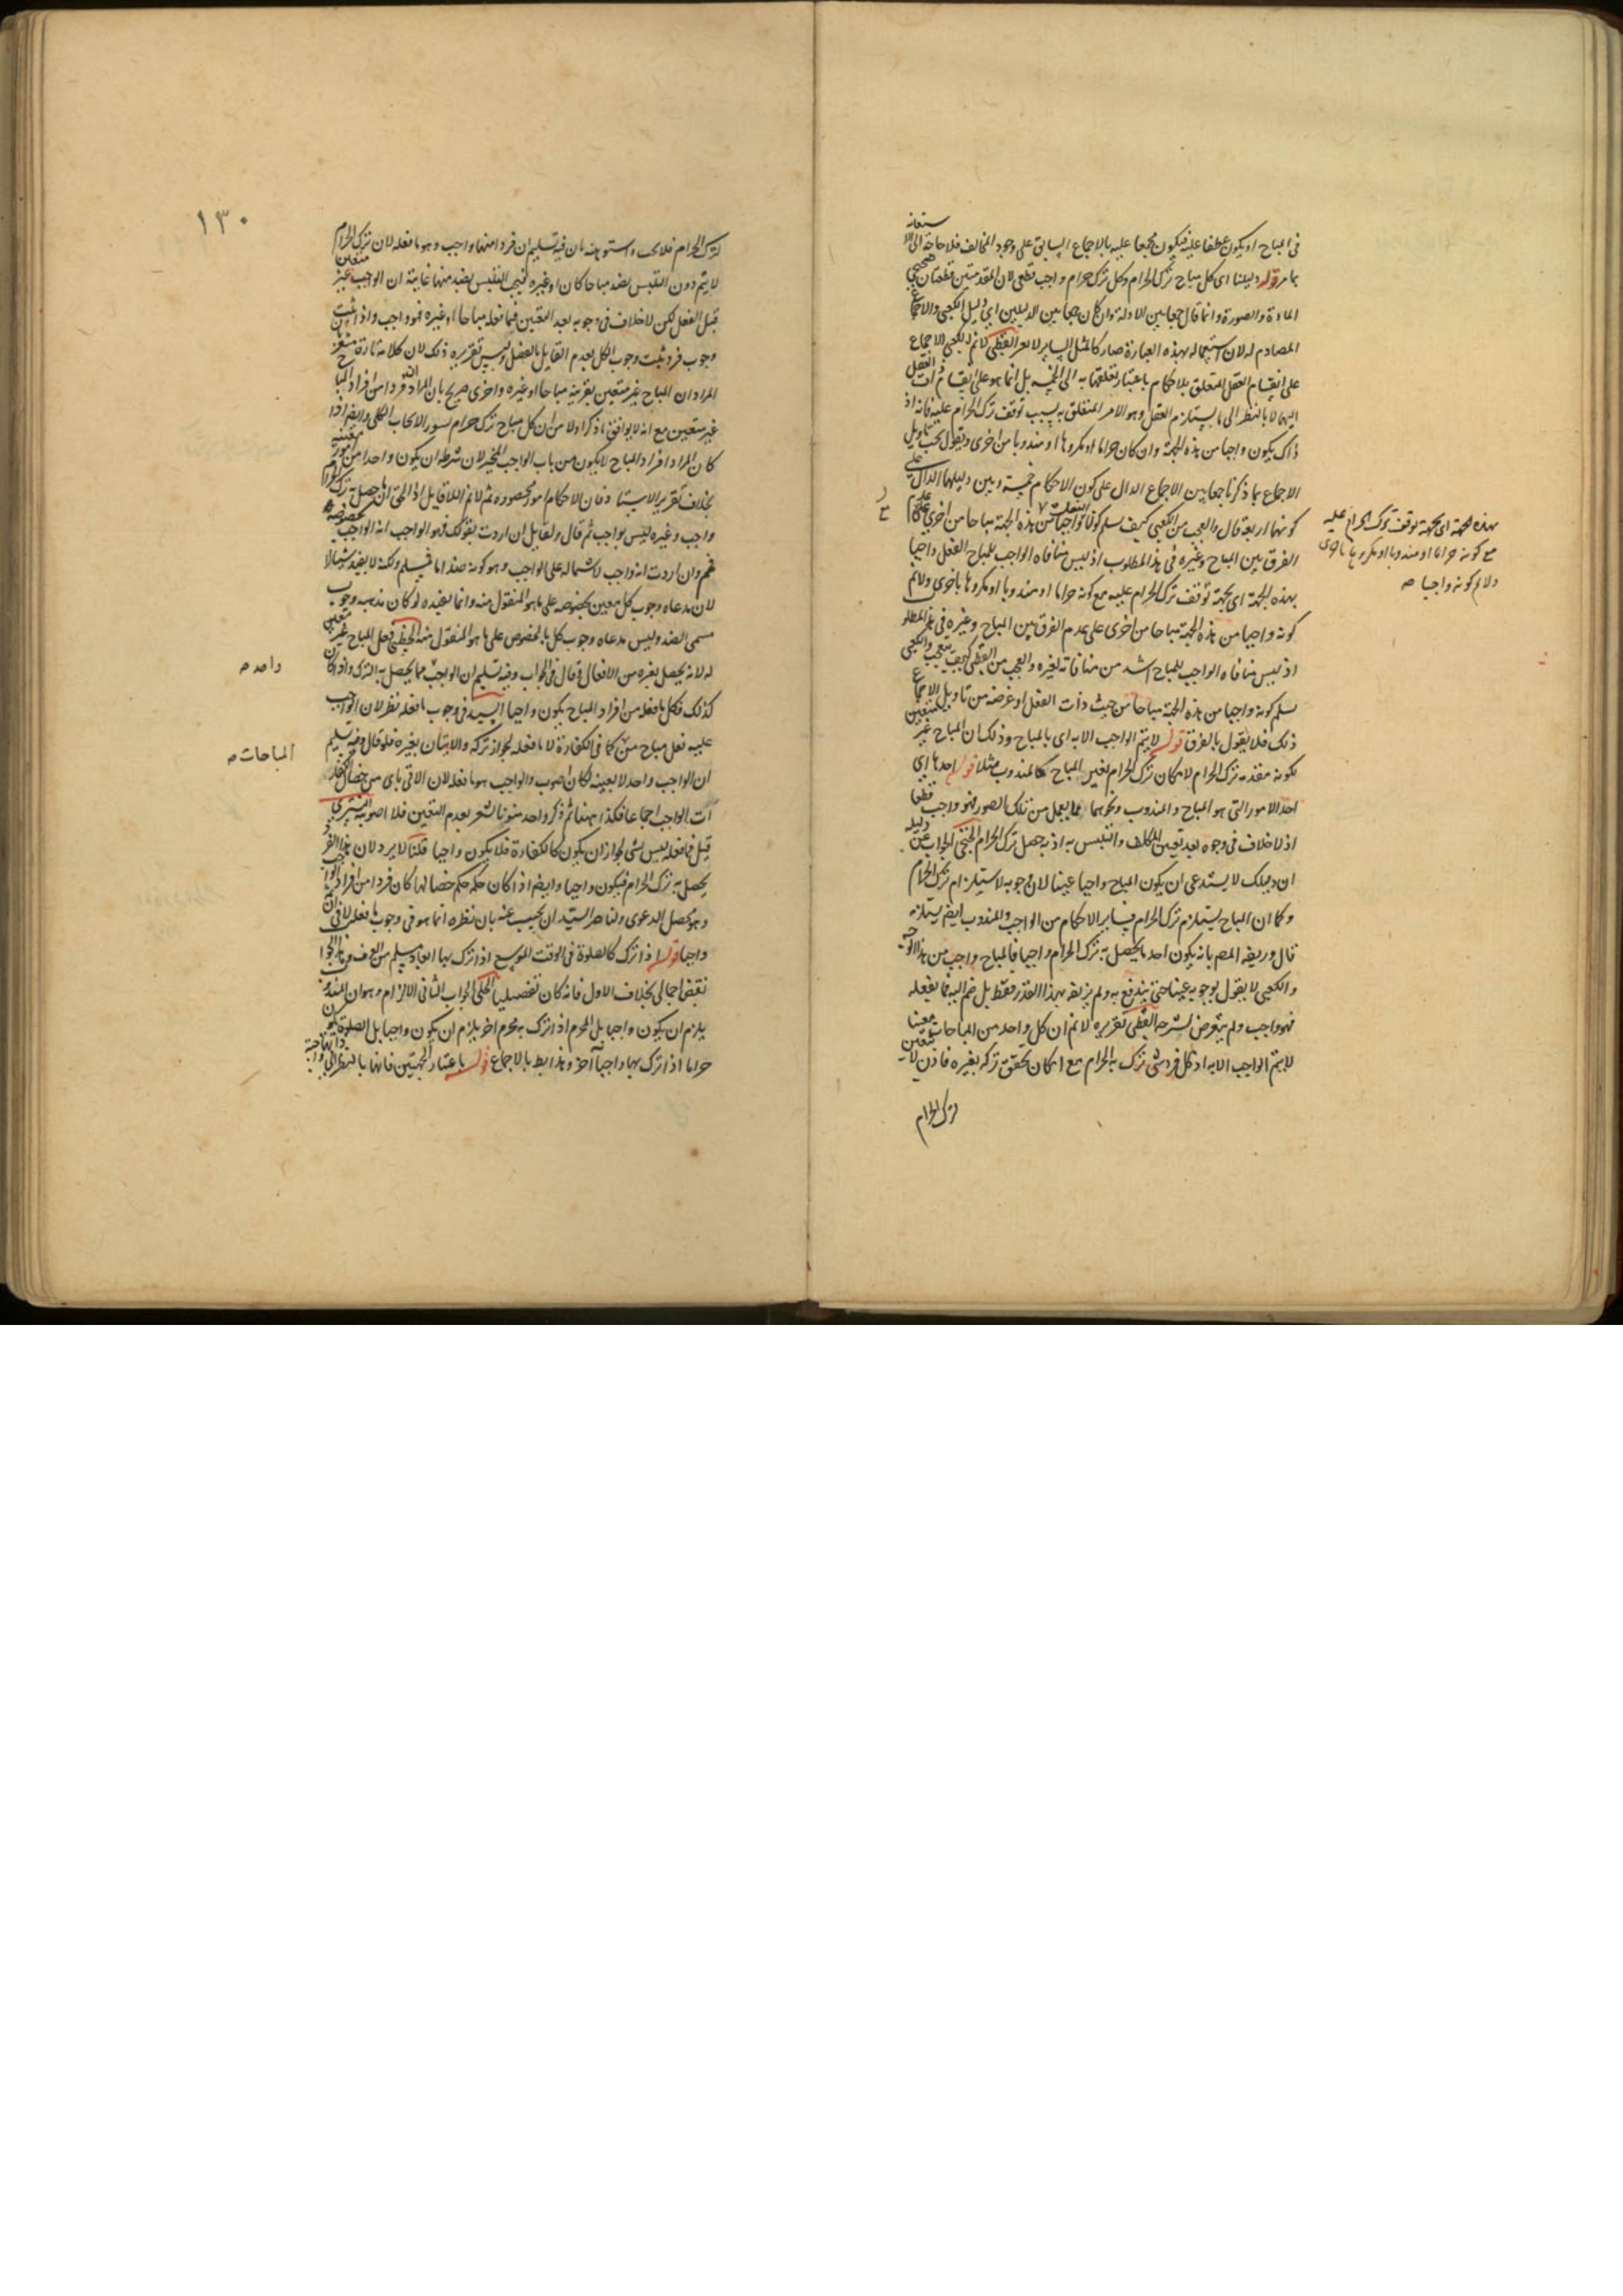 في المباح او يكون عطفا عليه فيكون مجمعا عليه بالاجماع السابق على وجود المخالف فلا حاجة الى الاستعانة
بما مر قوله دليلنا اى كل مباح ترك الحرام وكل ترك حرام واجب قطعى لان المقدمتين قطعيتان صحيحى
المادة والصورة وانما قال جمعا بين الادلة وان كان جمعا بين الدليلين اى دليل الكعبى والاجماع
المصادم له لان استعماله بهذه العبارة صار كالمثل الساير لا نم للكعبى الاجماع
على انقسام الفعل المتعلق بالاحكام باعتبار تعلقها به الى الخمسة بل انما هو على انقسام ذات الفعل
اليها لا بالنظر الى ما يستلزم الفعل وهو الامر المتعلق به بسبب توقف ترك الحرام عليه فانه اذ
ذاك يكون واجبا من هذه الجهة وان كان حراما او مكروها او مندوبا من اخرى ونقول يجب تأويل
الاجماع بما ذكرنا جمعا بين الاجماع الدال على كون الاحكام خمسة وبين دليلها الدال على
كونها اربعة قال والعجب من الكعبى كيف سلم كونه واجبا من هذه الجهة مباحا من اخرى
الفرق بين المباح وغيره فى هذا المطلوب اذ ليس منافاة الواجب للمباح الفعل واجبا
بهذه الجهة اى بجهة توقف ترك الحرام عليه مع كونه حراما او مندوبا او مكروها باخرى ولا نم
كونه واجبا من هذه الجهة مباحا من اخرى على عدم الفرق بين المباح وغيره فى هذا المطلوب
اذ ليس منافاة الواجب للمباح اشد من منافاته لغيره والعجب من القطبى كيف تعجب والكعبى
سلم كونه واجبا من هذه الجهة مباحا من حيث ذات الفعل او غرضه من تأويل الاجماع
ذلك فلا يقول بالفرق قوله لا يتم الواجب الا به اى بالمباح وذلك ان المباح غير متعين
لكونه مقدمة ترك الحرام لامكان ترك الحرام بغير المباح كالمندوب مثلا قوله احدها اى
احد الامور التى هو المباح والمندوب ونحوهما مما يعمل من تلك الصور فهو واجب قطعا
اذ لا خلاف فى وجوبه بعد تعيين المكلف والتلبس به اذ به حصل ترك الحرام الجواب عن دليله
ان دليلك لا يستدعى ان يكون المباح واجبا عينا لان وجوبه لاستلزام ترك الحرام
وكما ان المباح يستلزم ترك الحرام فساير الاحكام من الواجب والمندوب ايضم يستلزمه
قال وزيفه المصم بانه يكون احد ما يحصل به ترك الحرام واجبا فالمباح واجب من هذا الوجه
والكعبى لا يقول بوجوبه عينا حتى يندفع به ولم يزيفه بهذا القدر فقط بل ضم اليه فما يفعله
فهو واجب ولم يتعرض لشرحه القطبى تقريره لا نم ان كل واحد من المباحات معينا
لا يتم الواجب الا به اذ كل فرد شى ترك به الحرام مع امكان تحقق تركه بغيره فاذن لا يتعين
لترك الحرام
بهذه الجهة اى بجهة توقف ترك الحرام عليه
مع كونه حراما او مندوبا او مكروها باخرى
ولا نم كونه واجبا صه
١٣٠
لترك الحرام فلا يجب بان فيه تسليم ان فردا منها واجب وهو ما فعله لان ترك الحرام
لا يتم دون التلبس بضد مباحا كان او غيره فيجب التلبس بضد منها غايته ان الواجب غير متعين
قبل الفعل لكن لا خلاف فى وجوبه بعد التعيين فما فعله مباحا او غيره فهو واجب واذا ثبت
وجوب فرد ثبت وجوب الكل بعدم القايل بالفصل وليس تقريره ذلك لان كلامه تارة
المراد ان المباح غير متعين بقرينة مباحا او غيره واخرى صريح بان المراد فردا من افراد المباح
غير متعين مع انه لا يوافق ما ذكر اولا من ان كل مباح ترك حرام بسور الايجاب الكلى وايضم اذا
كان المراد افراد المباح لا يكون من باب الواجب المخير لان شرطه ان يكون واحدا من امور معينة
بخلاف تقرير الاستاد فان الاحكام امور محصورة ثم لا نم اللا قايل اذ الحق ان ما حصل به ترك الحرام
واجب وغيره ليس بواجب ثم قال ولقايل ان اردت بقولك فهو الواجب انه الواجب بخصوصه
فمم وان اردت انه واجب لاشتماله على الواجب وهو كونه ضدا ما فمسلم ولكنه لا يفيد شيئا
لان مدعاه وجوب كل معين بخصوصه على ما هو المنقول منه وانما يفيده لو كان مذهبه وجوب
مسمى الضد وليس مدعاه وجوب كل بالخصوص على ما هو المنقول منه فعل المباح غير متعين
له لانه يحصل بغيره من الافعال وقال فى الجواب وفيه تسليم ان الواجب ما يحصل به الترك واذا كان
كذلك فكل ما فعله من افراد المباح يكون واجبا السيد فى وجوب ما فعله نظر لان الواجب
عليه فعل مباح من كما فى الكفارة لا ما فعله لجواز تركه والاتيان بغيره فلو قال وفيه تسليم
ان الواجب واحد لا بعينه لكان اصوب والواجب هو ما فعله لان الاتى باى من خصال الكفارة
آت الواجب اجماعا فكذا ههنا ثم ذكر واحد منونا تشعر بعدم التعيين فلا اصوبية التسترى
قيل فما فعله ليس بشى لجواز ان يكون كالكفارة فلا يكون واجبا قلنا لا يرد لان هذا الفرد
يحصل به ترك الحرام فيكون واجبا وايضم اذا كان حكمه حكم خصالها كان فردا من افراد الواجب
وهو محصل الدعوى ولناصر السيد ان يجيب عنه بان نظره انما هو فى وجوب ما فعله لا فى
واجبا قوله اذا ترك كالصلوة فى الوقت الموسع اذا ترك بها
نقض اجمالى بخلاف الاول فانه كان تفصيليا الحلى الجواب الثانى الالزام وهو ان المندوب
يلزم ان يكون واجبا بل المحرم اذا ترك به محرم اخر يلزم ان يكون واجبا بل الصلوة يكون
حراما اذا ترك بها واجبا آخر وهذا بط بالاجماع قوله باعتبار الجهتين فانها بالنظر الى
واحد صه
المباحات صه